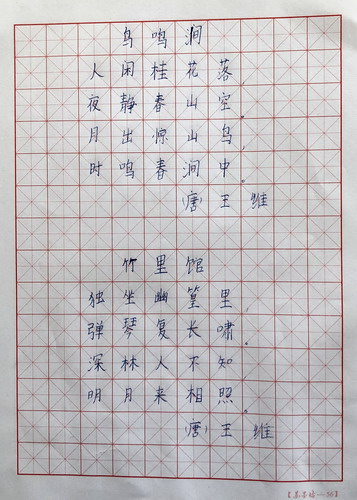 鸟鸣涧
人闲桂花落,
夜静春山空。
月出惊山鸟,
时鸣春涧中。
(唐)王维
竹里馆
独坐幽篁里,
弹琴复长啸。
深林人不知
明月来相照。
(唐)王维